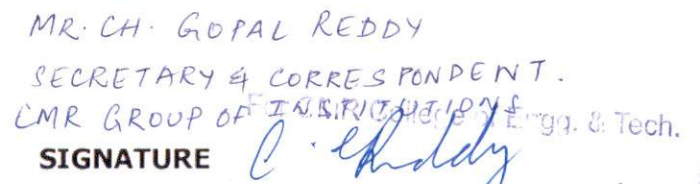 MR. CH. GOPAL REDDY
SECRETARY & CORRESPONDENT.
CMR GROUP OF INSTITUTIONS
College of Engg. & Tech.
SIGNATURE C. Reddy